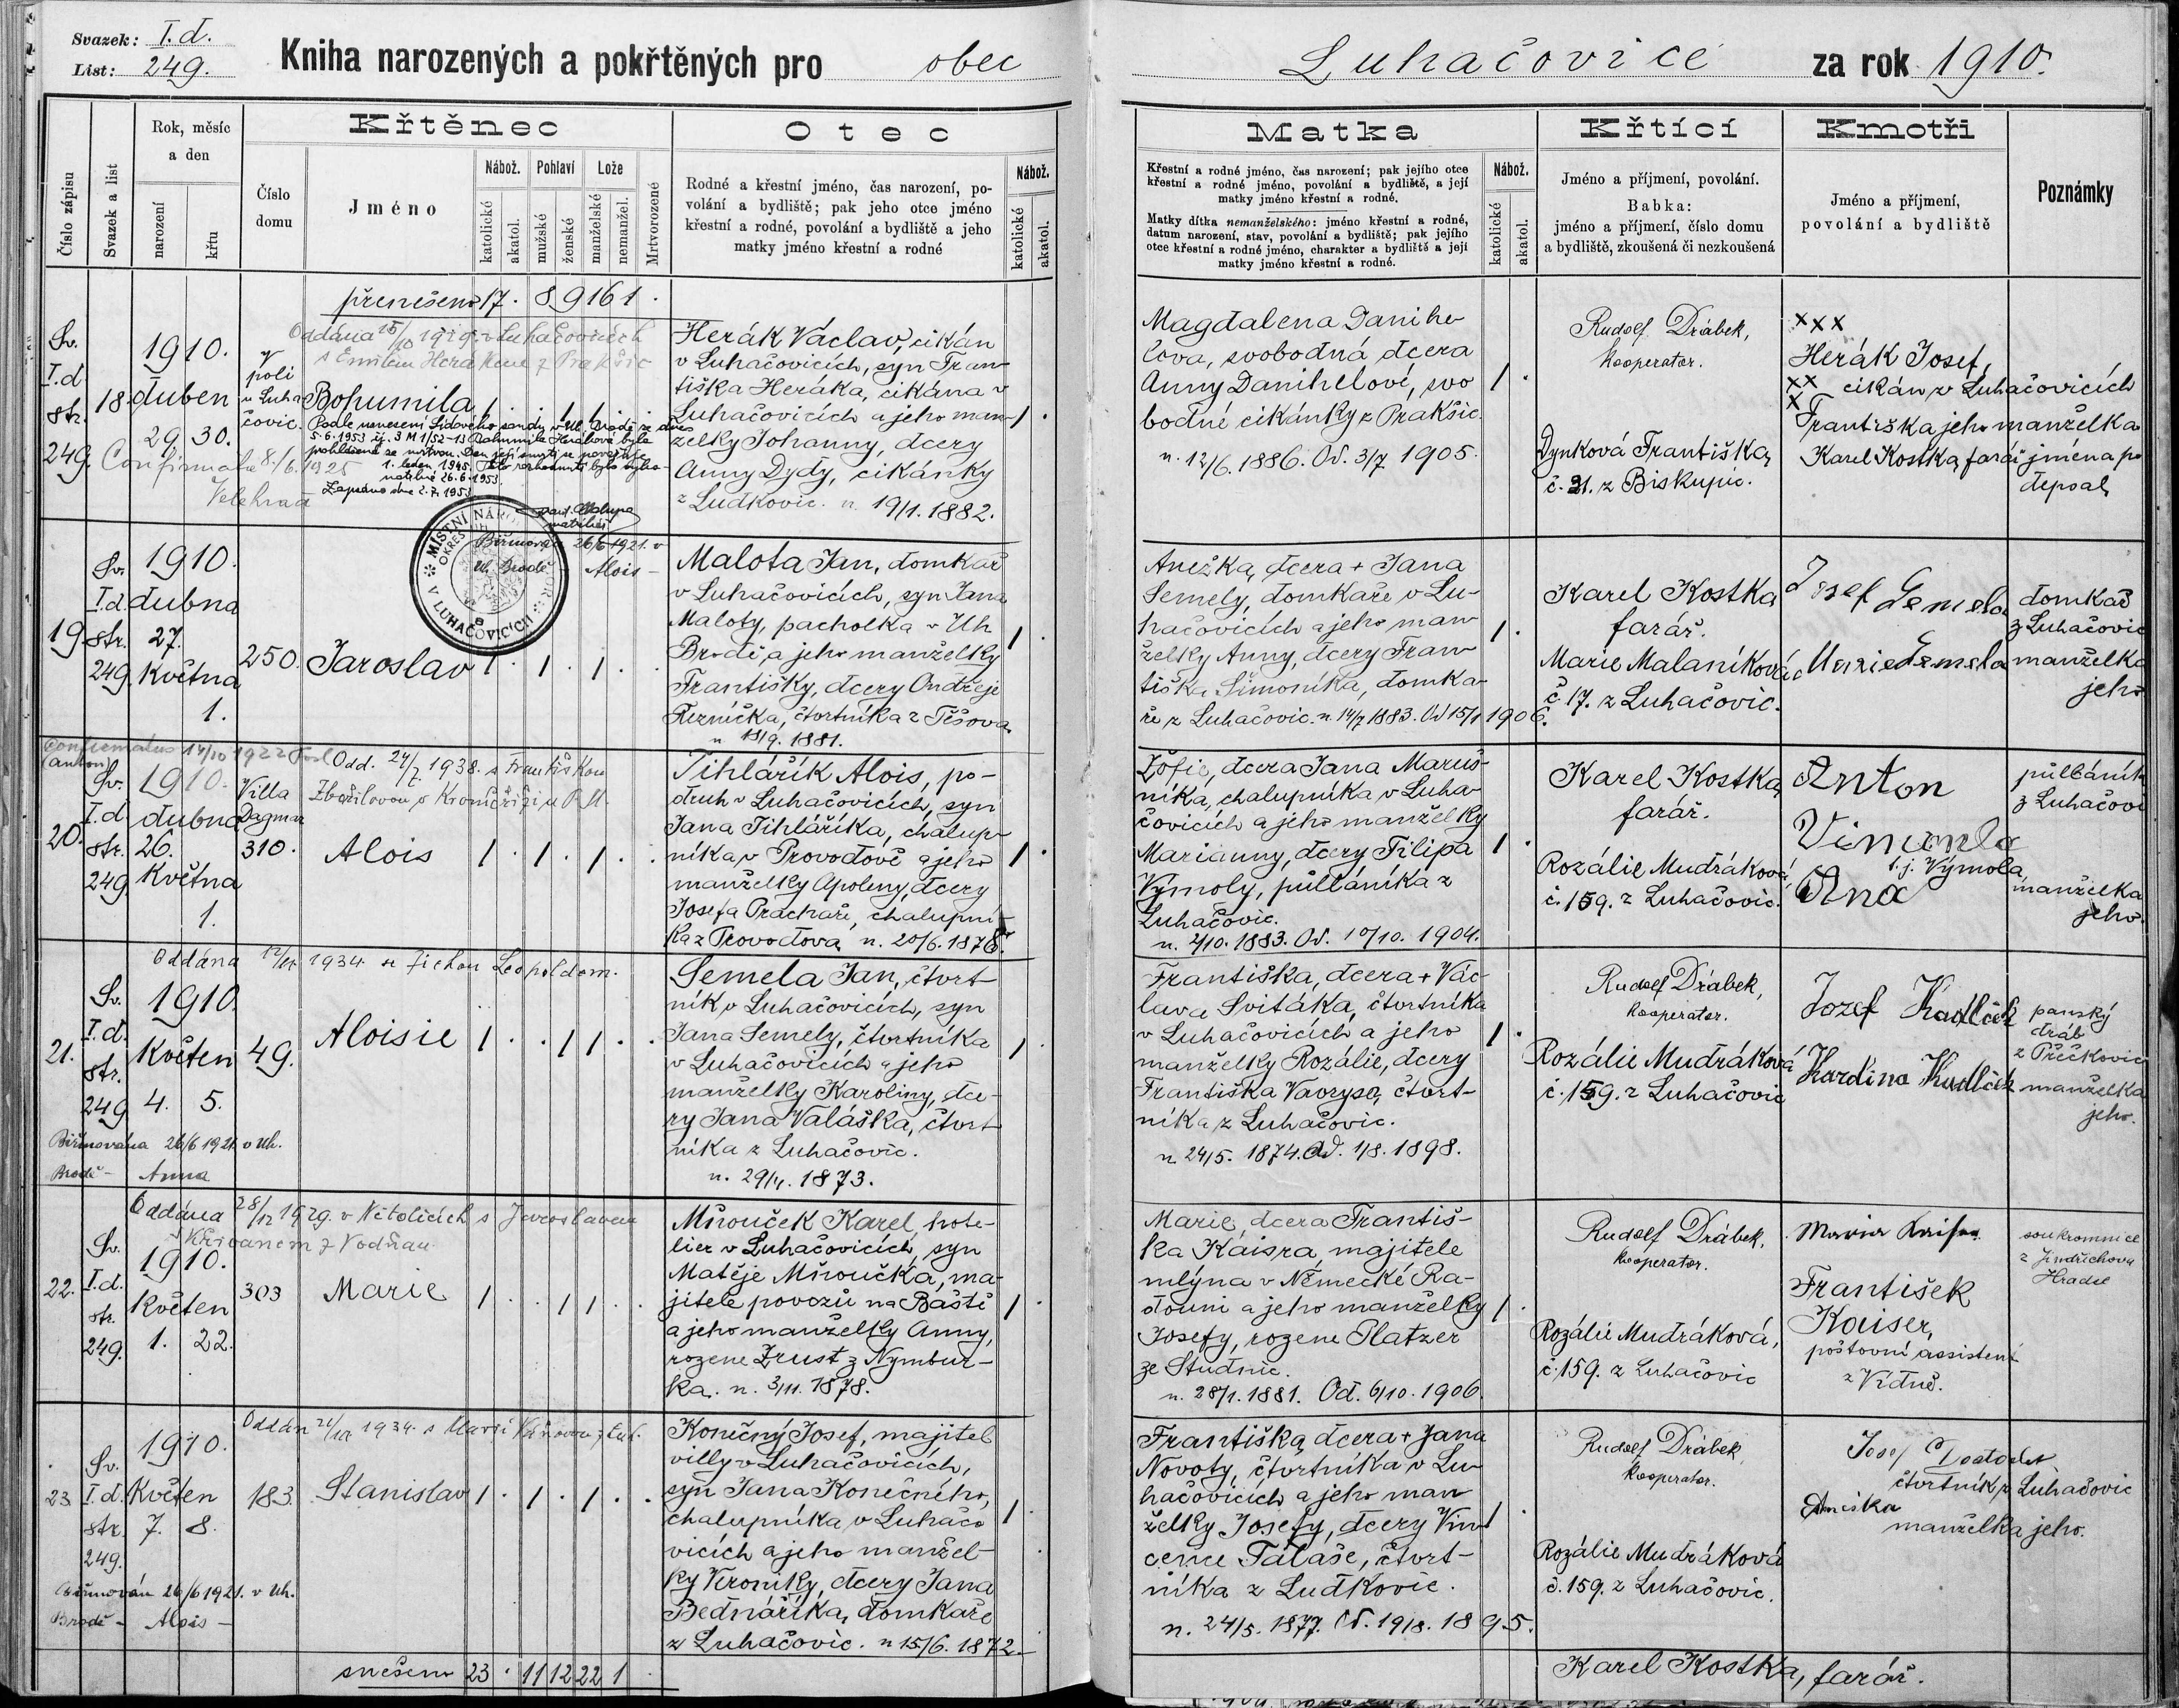 Svazek: I.d.
List: 249.
Kniha narozených a pokřtěných pro obec
Luhačovice za rok 1910.
Číslo zápisu
Svazek a list
Rok, měsíc
a den
narození
křtu
Číslo
domu
Křtěnec
Jméno
Nábož.
katolické
akatol.
Pohlaví
mužské
ženské
Lože
manželské
nemanžel.
Mrtvorozené
Otec
Rodné a křestní jméno, čas narození, po-
volání a bydliště; pak jeho otce jméno
křestní a rodné, povolání a bydliště a jeho
matky jméno křestní a rodné
Nábož.
katolické
akatol.
Matka
Křestní a rodné jméno, čas narození; pak jejího otce
křestní a rodné jméno, povolání a bydliště, a její
matky jméno křestní a rodné.
Matky dítka nemanželského: jméno křestní a rodné,
datum narození, stav, povolání a bydliště; pak jejího
otce křestní a rodné jméno, charakter a bydliště a její
matky jméno křestní a rodné.
Nábož.
katolické
akatol.
Křtící
Jméno a příjmení, povolání.
Babka:
jméno a příjmení, číslo domu
a bydliště, zkoušená či nezkoušená
Kmotři
Jméno a příjmení,
povolání a bydliště
Poznámky
přenešeno 17 . 8 9 16 1 .
Sv.
I.d
str.
249.
18.
1910.
duben
29. 30.
V
poli
u Luha
čovic.
Oddána 25/10 1919 v Luhačovicích
s Emilem Herákem z Prakšic
Bohumila
Podle usnesení Lidového soudu v Uh. Brodě ze dne
5.6.1953 čj. 3 M 1/52-13 Bohumila Heráková byla
prohlášena za mrtvou. Den její smrti se považuje
1. leden 1945. Toto rozhodnutí bylo
26.6.1953.
Zapsáno dne 2.7.1953
Confirmata 8./6. 1925
Velehrad
MÍSTNÍ NÁRODNÍ VÝBOR
V LUHAČOVICÍCH
OKRES
Herák Václav, cikán
v Luhačovicích, syn Fran
tiška Heráka, cikána v
Luhačovicích a jeho man-
želky Johanny, dcery
Anny Dydy, cikánky
z Ludkovic. n. 19/1. 1882.
Magdalena Danihe
lova, svobodná dcera
Anny Danihelové, svo
bodné cikánky z Prakšic.
n. 12/6. 1886. Od. 3/7 1905.
Rudolf Drábek,
kooperator.
Dynková Františka,
č. 21. z Biskupic.
xxx
Herák Josef,
xx cikán v Luhačovicích
x
Františka jeho manželka
Karel Kostka, farář jména po
depsal,
19.
Sv.
I.d.
str.
249.
1910.
dubna
27.
Května
1.
250.
Jaroslav
Biřmován 26/6 1921. v
Uh. Brodě - Alois -
Malota Jan, domkař
v Luhačovicích, syn Jana
Maloty, pacholka v Uh
Brodě, a jeho manželky
Františky, dcery Ondřeje
Řezníčka, čtvrtníka z Těšova,
n. 18/9. 1881.
Anežka, dcera + Jana
Semely, domkaře v Lu-
hačovicích a jeho man
želky Anny, dcery Fran
tiška Šimoníka, domka-
ře z Luhačovic. n. 14/7 1883. Od 15/1 1906.
Karel Kostka
farář.
Marie Malaníková,
č. 17. z Luhačovic.
Josef Semela
Marie Semela
domkař
z Luhačovic
manželka
jeho.
Confirmatus 14/10 1922
(Anton)
20.
Sv.
I.d.
str.
249
1910.
dubna
26.
Května
1.
Villa
Dagmar
310.
Odd. 24/7. 1938. s Františkou
Zbořilovou v Kroměříži u P.M.
Alois
Tihlářík Alois, po-
druh v Luhačovicích, syn
Jana Tihlaříka, chalup-
níka v Provodově a jeho
manželky Apoleny, dcery
Josefa Prachaře, chalupní-
ka z Provodova n. 20/6. 1878.
Žofie, dcera Jana Maruš-
níka, chalupníka v Luha-
čovicích a jeho manželky
Marianny, dcery Filipa
Výmoly, půlláníka z
Luhačovic.
n. 2/10. 1883. Od. 10/10. 1904.
Karel Kostka,
farář.
Rozálie Mudráková,
č. 159. z Luhačovic.
Anton
Vimmola
t.j. Výmola,
Ana
půlláník
z Luhačovi
manželka
jeho.
21.
Sv.
I.d.
str.
249
1910.
Květen
4. 5.
49.
Oddána 1934 Leopoldem.
Aloisie
Biřmována 26/6 1921. v Uh.
Brodě - Anna
Semela Jan, čtvrt-
ník v Luhačovicích, syn
Jana Semely, čtvrtníka
v Luhačovicích a jeho
manželky Karoliny, dce-
ry Jana Valáška, čtvrt
níka z Luhačovic.
n. 29/4. 1873.
Františka, dcera + Vác-
lava Svitáka, čtvrtníka
v Luhačovicích a jeho
manželky Rozálie, dcery
Františka Vavryse, čtvrt-
níka z Luhačovic.
n. 24/5. 1874. Od. 1/8. 1898.
Rudolf Drábek,
kooperator.
Rozálie Mudráková
č. 159. z Luhačovic
Jozef Kudláček
Kudláček
panský
dráb
z Přečkovic
manželka
jeho.
22.
Sv.
I.d.
str.
249.
1910.
Květen
1. 22.
303
Oddána 28/12 1929. v Netolicích s Jaroslavem
Křivanem z Vodňan
Marie
Mňouček Karel, hote-
lier v Luhačovicích, syn
Matěje Mňoučka, ma-
jitele povozů na Baště
a jeho manželky Anny,
rozené Zrust z Nymbur-
ka. n. 3/11. 1878.
Marie, dcera Františ-
ka Káisra, majitele
mlýna v Německé Ra-
douni a jeho manželky
Josefy, rozené Platzer
ze Studnic.
n. 28/1. 1881. Od. 6/10. 1906.
Rudolf Drábek,
kooperator.
Rozálie Mudráková,
č. 159. z Luhačovic
Maria
František
Kaiser,
poštovní assistent
z Vídně.
soukromnice
z Jindřichova
Hradce
23
Sv.
I.d.
str.
249.
1910.
Květen
7. 8.
183.
Oddán 1934. s Marií
Stanislav
Biřmován 26/6 1921. v Uh.
Brodě - Alois -
Konečný Josef, majitel
villy v Luhačovicích,
syn Jana Konečného,
chalupníka v Luhačo
vicích a jeho manžel-
ky Veroniky, dcery Jana
Bednaříka, domkaře
z Luhačovic. n 15/6. 1872.
Františka, dcera + Jana
Novoty, čtvrtníka v Lu-
hačovicích a jeho man
želky Josefy, dcery Vin
cence Talaše, čtvrt-
níka z Ludkovic.
n. 24/5. 1877. Od. 19/8. 1895.
Rudolf Drábek,
kooperator.
Rozálie Mudráková
č. 159. z Luhačovic.
Josef
čtvrtník z Luhačovic
Anežka
manželka jeho.
snešeno 23 . 11 12 22 1 .
Karel Kostka, farář.